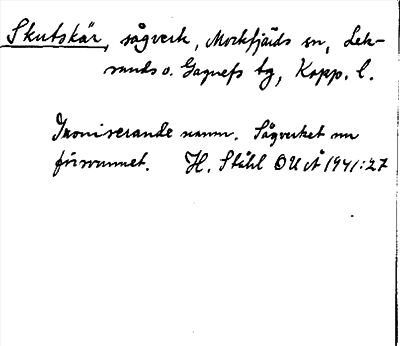 Skutskär, sågverk, Mockfjärds sn, Lek-
sands o. Gagnefs tg, Kopp. l.
Ironiserande namn. Sågverket nu
försvunnet. H. Ståhl OUÅ 1941:27